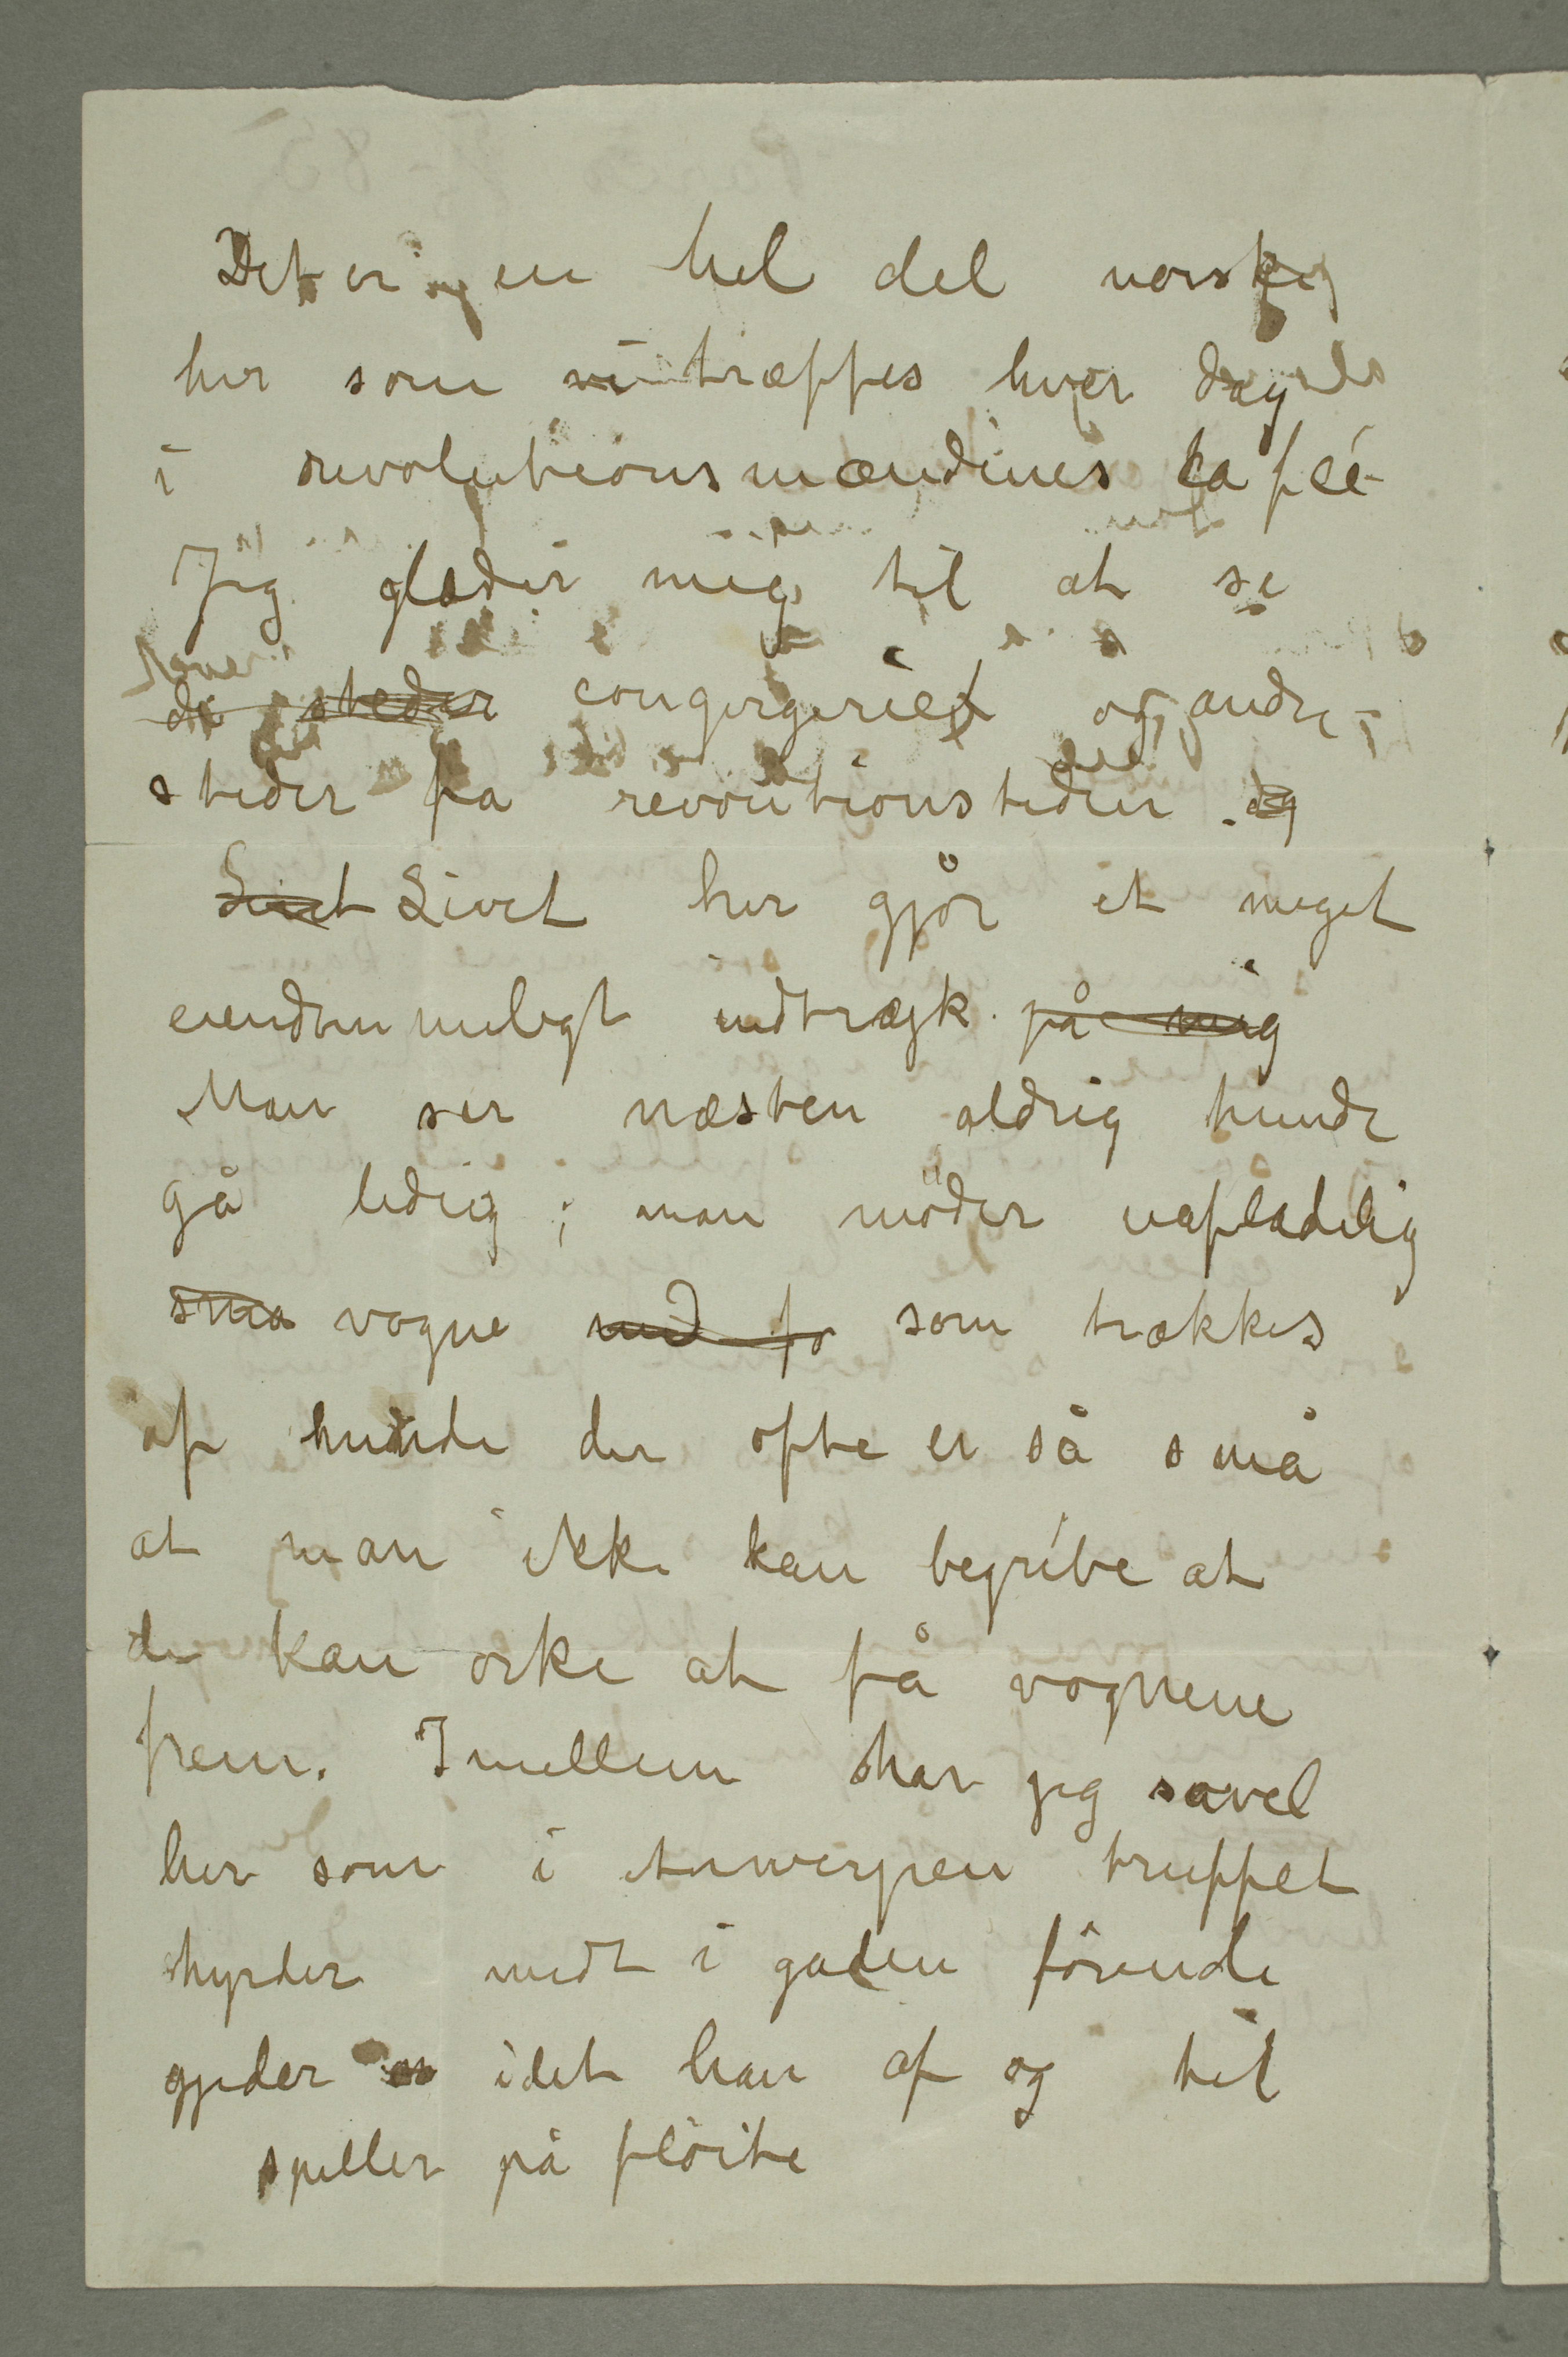 Det er en hel del norske
her som vi træffes hver dag
i revolutionsmændenes café
Jeg glæder mig til at se
de steder congergeriet og andre
steder fra revoutionstiden . og
Livet Livet her gjör et meget
eiendtummeligt indtrægk på mig
Man ser næsten aldrig hunde
gå ledig ; man möder uafladelig
sma vogne med fo som trækkes
af hunde der ofte er så små
at man ikke kan begribe at
de kan orke at få vognene
frem. Imellem har jeg savel
her som i Anwerpen truffet
hyrder midt i gaden förende
gjeder idet han af og til
spiller på flöite